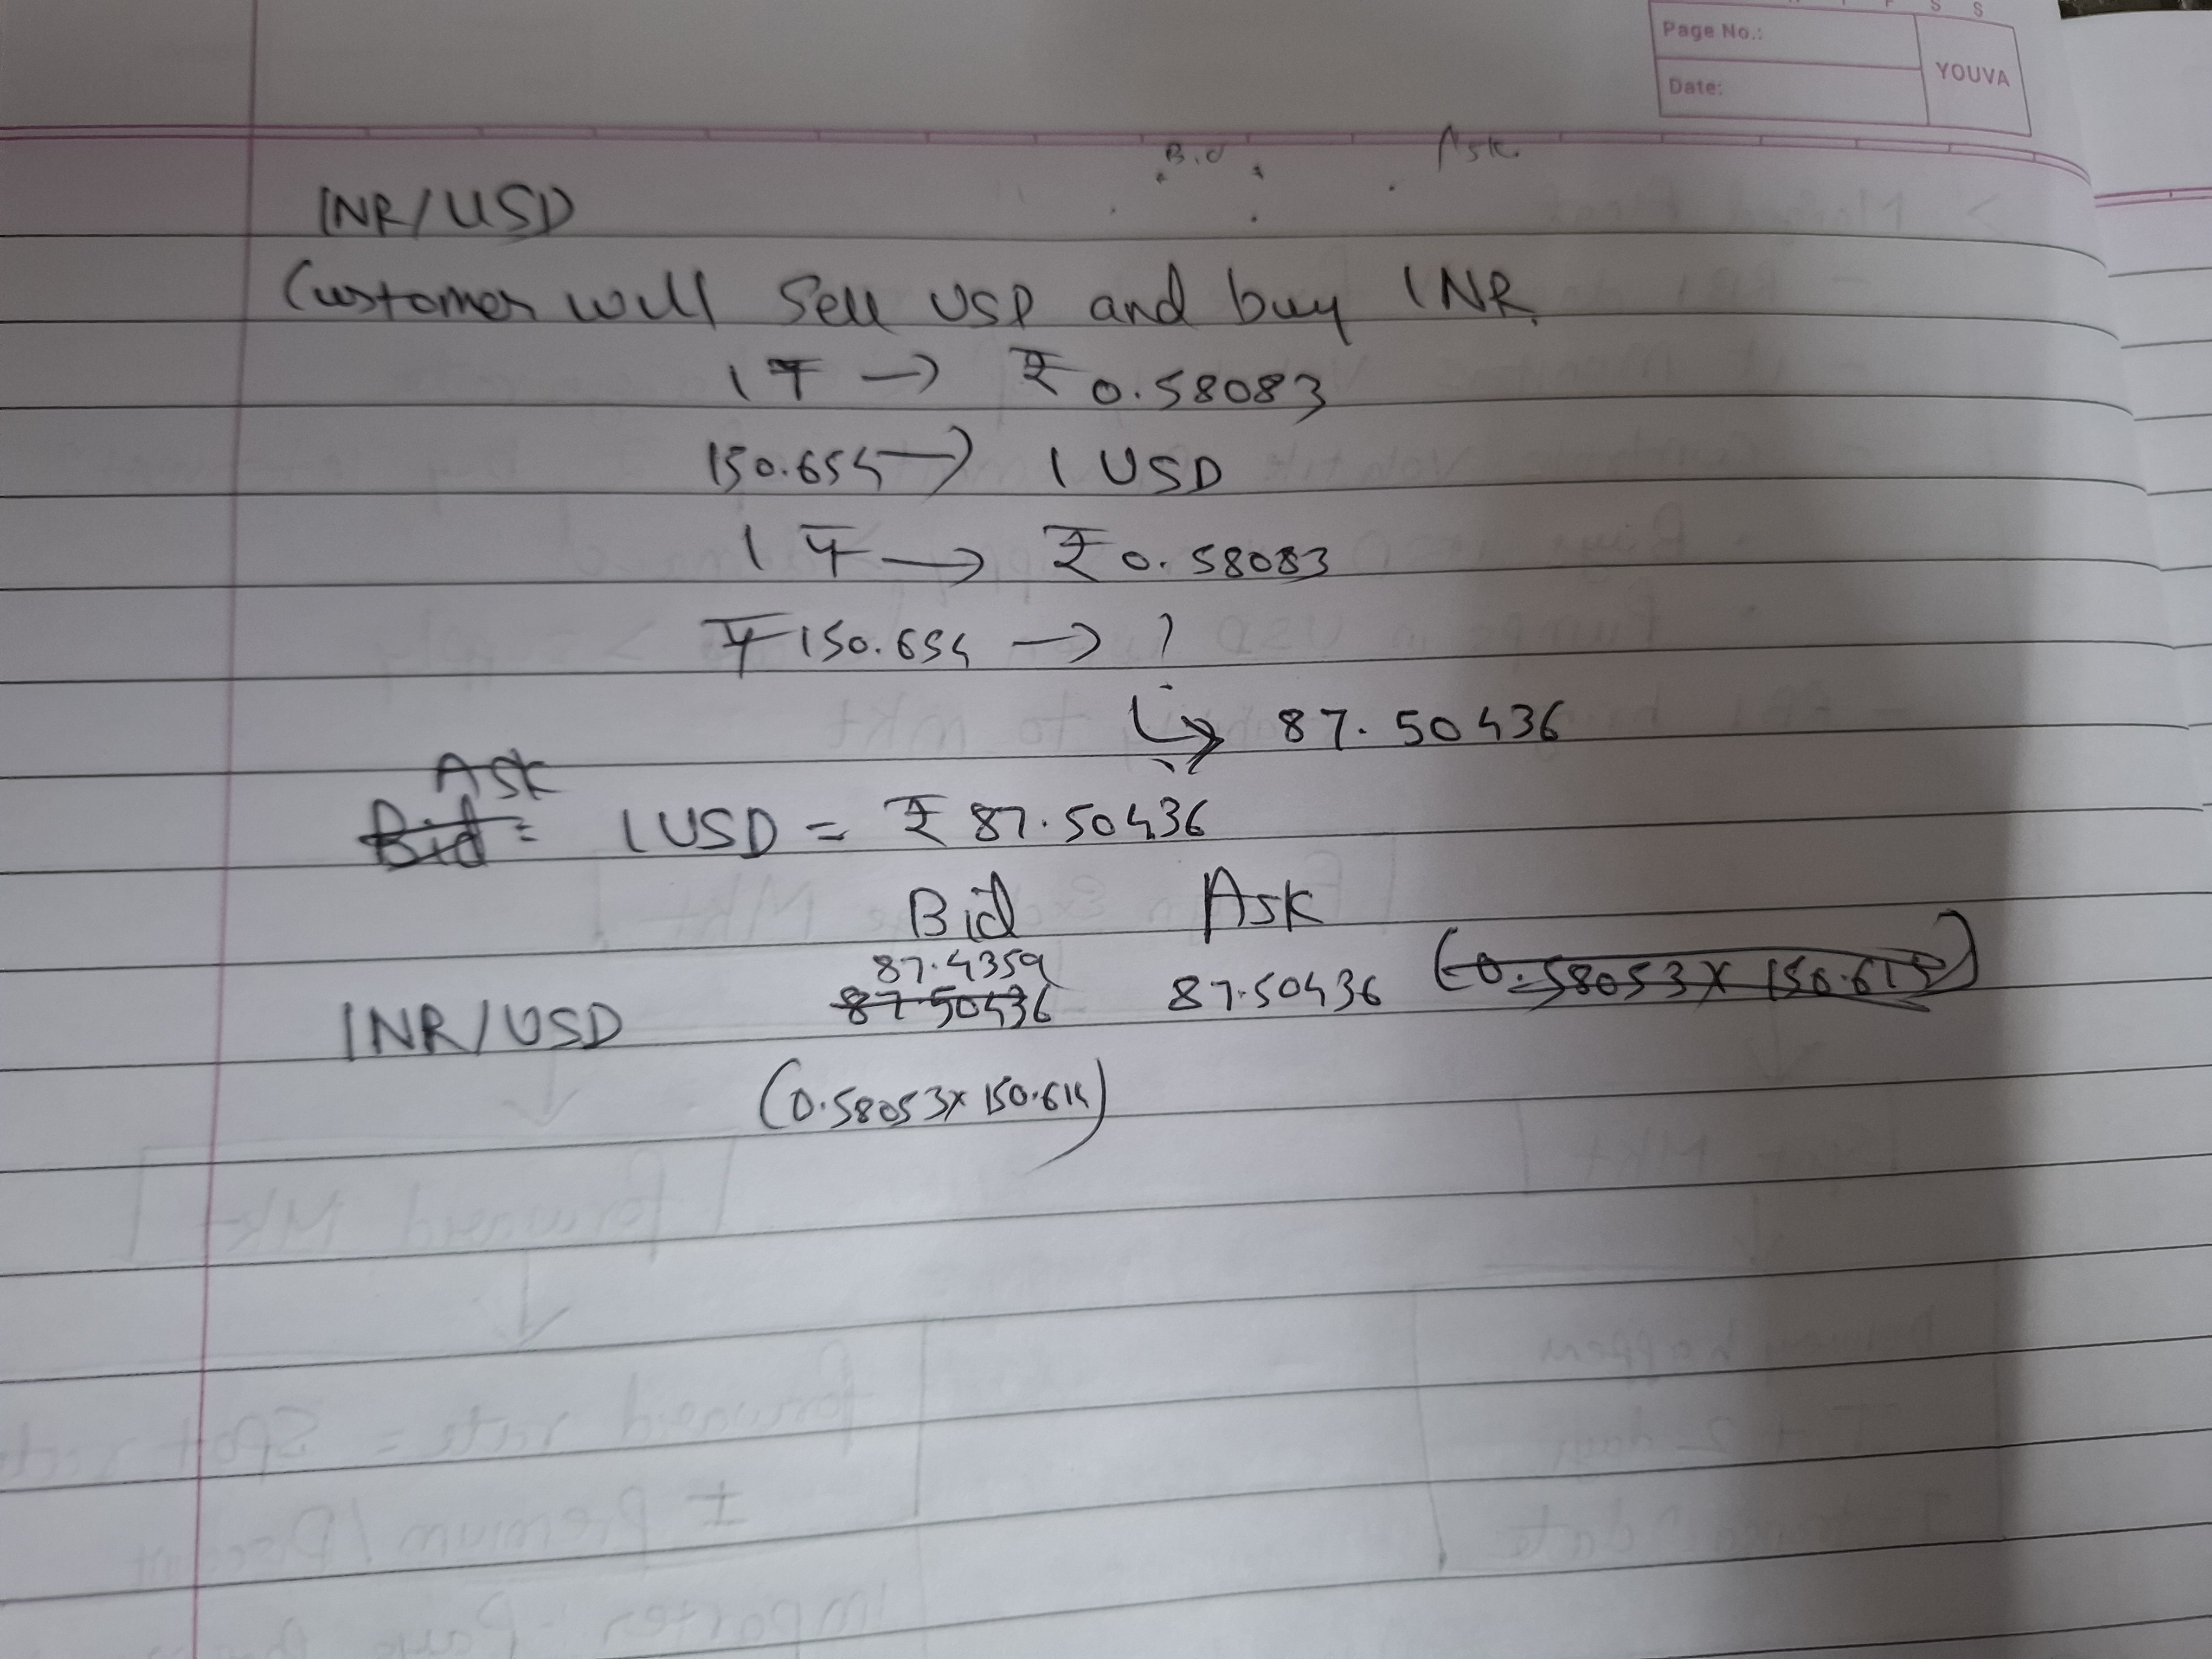 Page No.:
Date:
YOUVA
Bid Ask
INR/USD
Customer will Sell USD and buy INR.
1 ¥ → ₹ 0.58083
150.654 → 1 USD
1 ¥ → ₹ 0.58083
¥ 150.654 → ?
↳ 87.50436
Ask
Bid = 1 USD = ₹ 87.50436
Bid Ask
87.4359
INR/USD 87.50436 87.50436 (0.58053 x 150.615)
(0.58053 x 150.614)